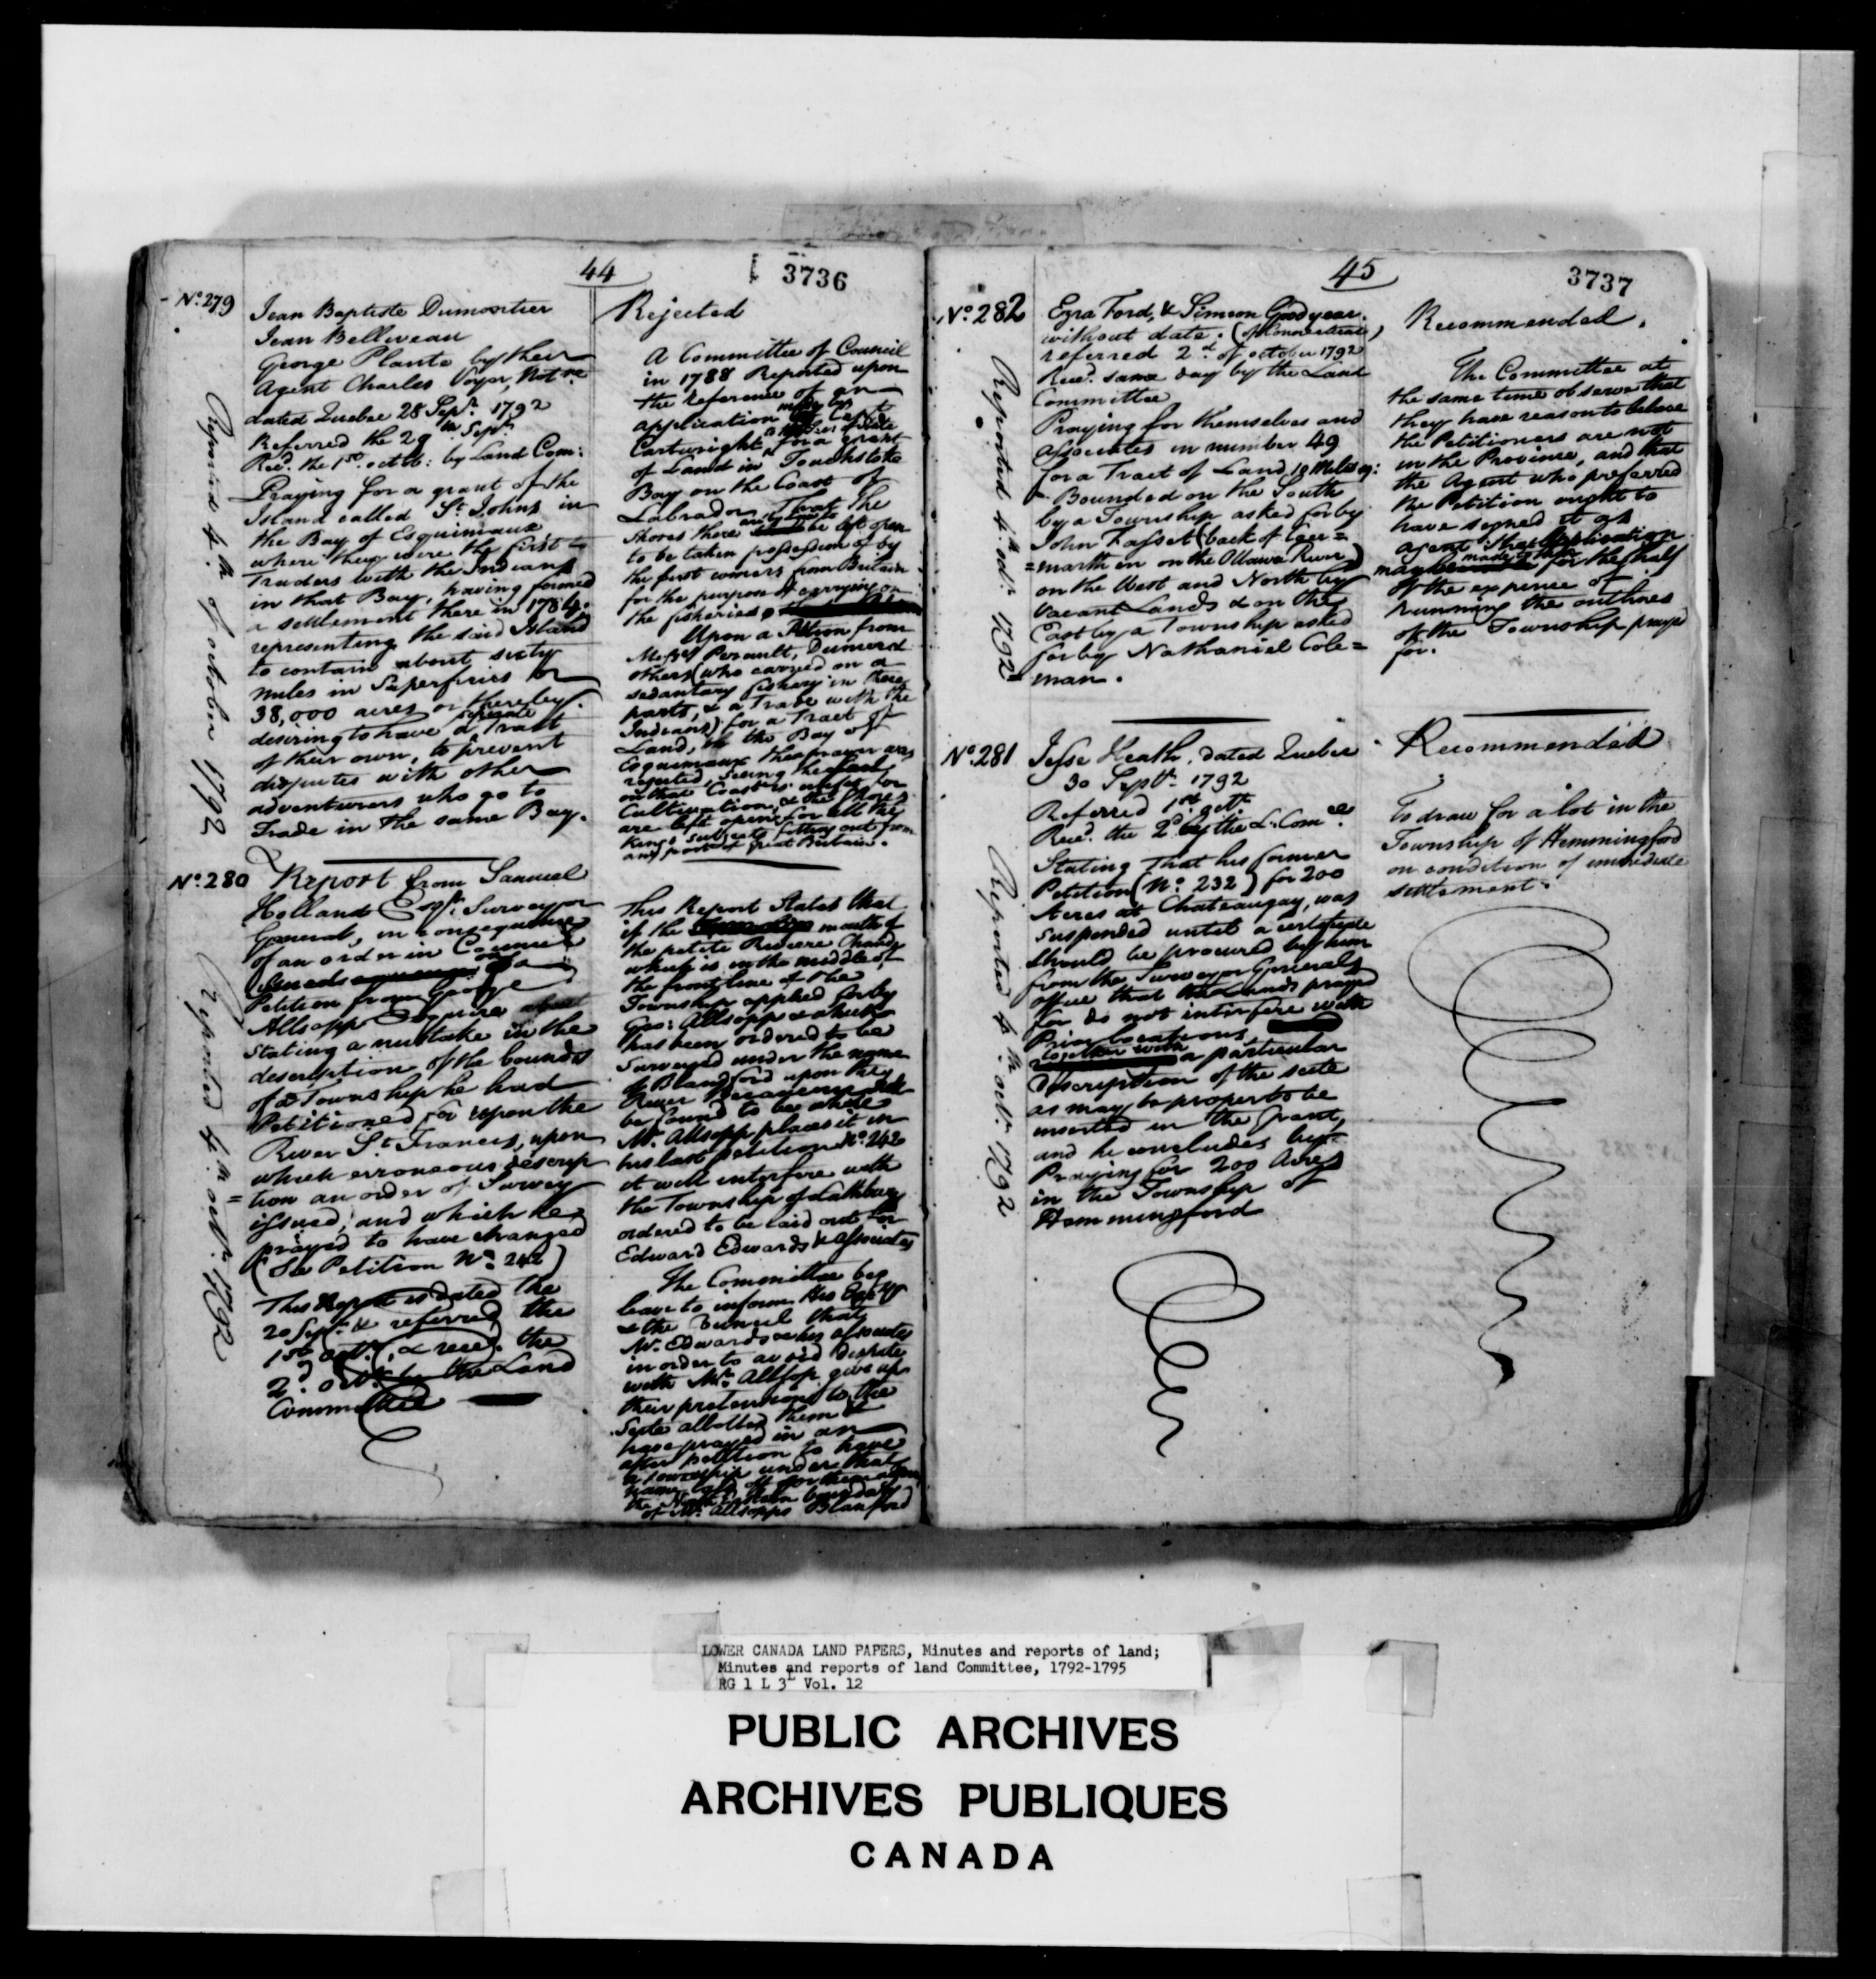 44
3736
No. 279
Jean Baptiste Dumontier
Jean Belliveau
George Plante by their
Agent Charles Voyer, Notre
dated Quebec 28 Sepr. 1792
Referred the 29th Sepr.
Recd. the 1st. octob: by Land Com:
Praying for a grant of the
Island called St. Johns in
the Bay of Esquimaux
where they were the first
Traders with the Indians
in that Bay, having formed
a settlement there in 1784.
representing the said Island
to contain about sixty
miles in Superficies or
38,000 acres or thereby.
desiring to have a separate
of their own, to prevent
disputes with other
adventurers who go to
Trade in the same Bay.
Reported 4th of october 1792
Rejected
A Committee of Council
in 1788 Reported upon
the Reference of an
application made by Capt.
Cartwright for a grant
of Land in Touchstoke
Bay on the Coast of
Labrador That the
shores there be left open
to be taken possession of by
the first comers from Britain
for the purpose of carrying on
the fisheries
Upon a Petition from
Messrs Perault, Dumord
others (who carried on a
sedantary fishery in these
parts, & a Trade with the
Indians) for a Tract of
Land, in the Bay of
Esquimaux the prayer was
rejected, seeing the land
on that Coast is unfit for
Cultivation, & the shores
are left open for all the
Kings subjects fitting out from
any port of Great Britain.
No. 280
Report from Samuel
Holland Esqr. Surveyor
General, in consequence
of an order in Council
on a
Petition from George
Allsopp Esquire
stating a mistake in the
description of the bounds
of a Township he had
Petitioned for upon the
River St. Francis, upon
which erroneous descrip
=tion an order of Survey
issued, and which he
prayed to have changed
(See Petition No. 242)
This Report is dated the
20 Sepr. & referred the
1st octr., & recd. the
2d. octr. by the Land
Committee
Reported 4th octr. 1792
This Report States that
if the mouth of
the petite Riviere Chaude
which is in the middle of
the front line of the
Township applied for by
Geo: Allsopp & which
has been ordered to be
Surveyed under the name
of Blandford upon the
River Becancour
be found to be where
Mr. Allsopp places it in
his last petition No. 242
it will interfere with
the Township of Lathbury
ordered to be laid out for
Edward Edwards & associates
The Committee beg
leave to inform His Excely
& the Council that
Mr. Edwards & his associates
in order to avoid dispute
with Mr. Allsop give up
their pretensions to the
Seite allotted them &
have prayed in an
after petition to have
a Township under that
name laid off for them
the North Eastern boundary
of Mr. Allsopps Blanford
45
3737
No. 282
Ezra Ford, & Simeon Goodyear.
without date. (of Connecticut)
referred 2d. of october 1792
Recd. same day by the Land
Committee
Praying for themselves and
associates in number 49
for a Tract of Land 10 Miles sq:
Bounded on the South
by a Township asked for by
John Fasset (back of Gren=
on the Ottawa River)
on the West and North by
vacant Lands & on the
East by a Township asked
for by Nathaniel Cole=
man.
Reported 4th oct: 1792
Recommended.
The Committee at
the same time observe that
they have reason to believe
the Petitioners are not
in the Province, and that
the Agent who preferred
the Petition ought to
have signed it as
agent that application
may be made to him for the half
of the expence of
running the outlines
of the Township prayed
for.
No. 281
Jesse Heath, dated Quebec
30 Septr. 1792
Referred 1st. octr.
Recd. the 2d. by the L. Comee.
Stating That his former
Petition (No. 232) for 200
Acres at Chateaugay, was
suspended until a certificate
should be procured by him
from the Surveyor Generals
office that the Lands prayed
for do not interfere with
Prior locations
together with a particular
Discription of the seite
as may be proper to be
inserted in the Grant,
and he concludes by
Praying for 200 Acres
in the Township of
Hemmingford
Reported 4th octr. 1792
Recommended
To draw for a lot in the
Township of Hemmingford
on condition of immediate
settlement.
LOWER CANADA LAND PAPERS, Minutes and reports of land;
Minutes and reports of land Committee, 1792-1795
RG 1 L 3L Vol. 12
PUBLIC ARCHIVES
ARCHIVES PUBLIQUES
CANADA